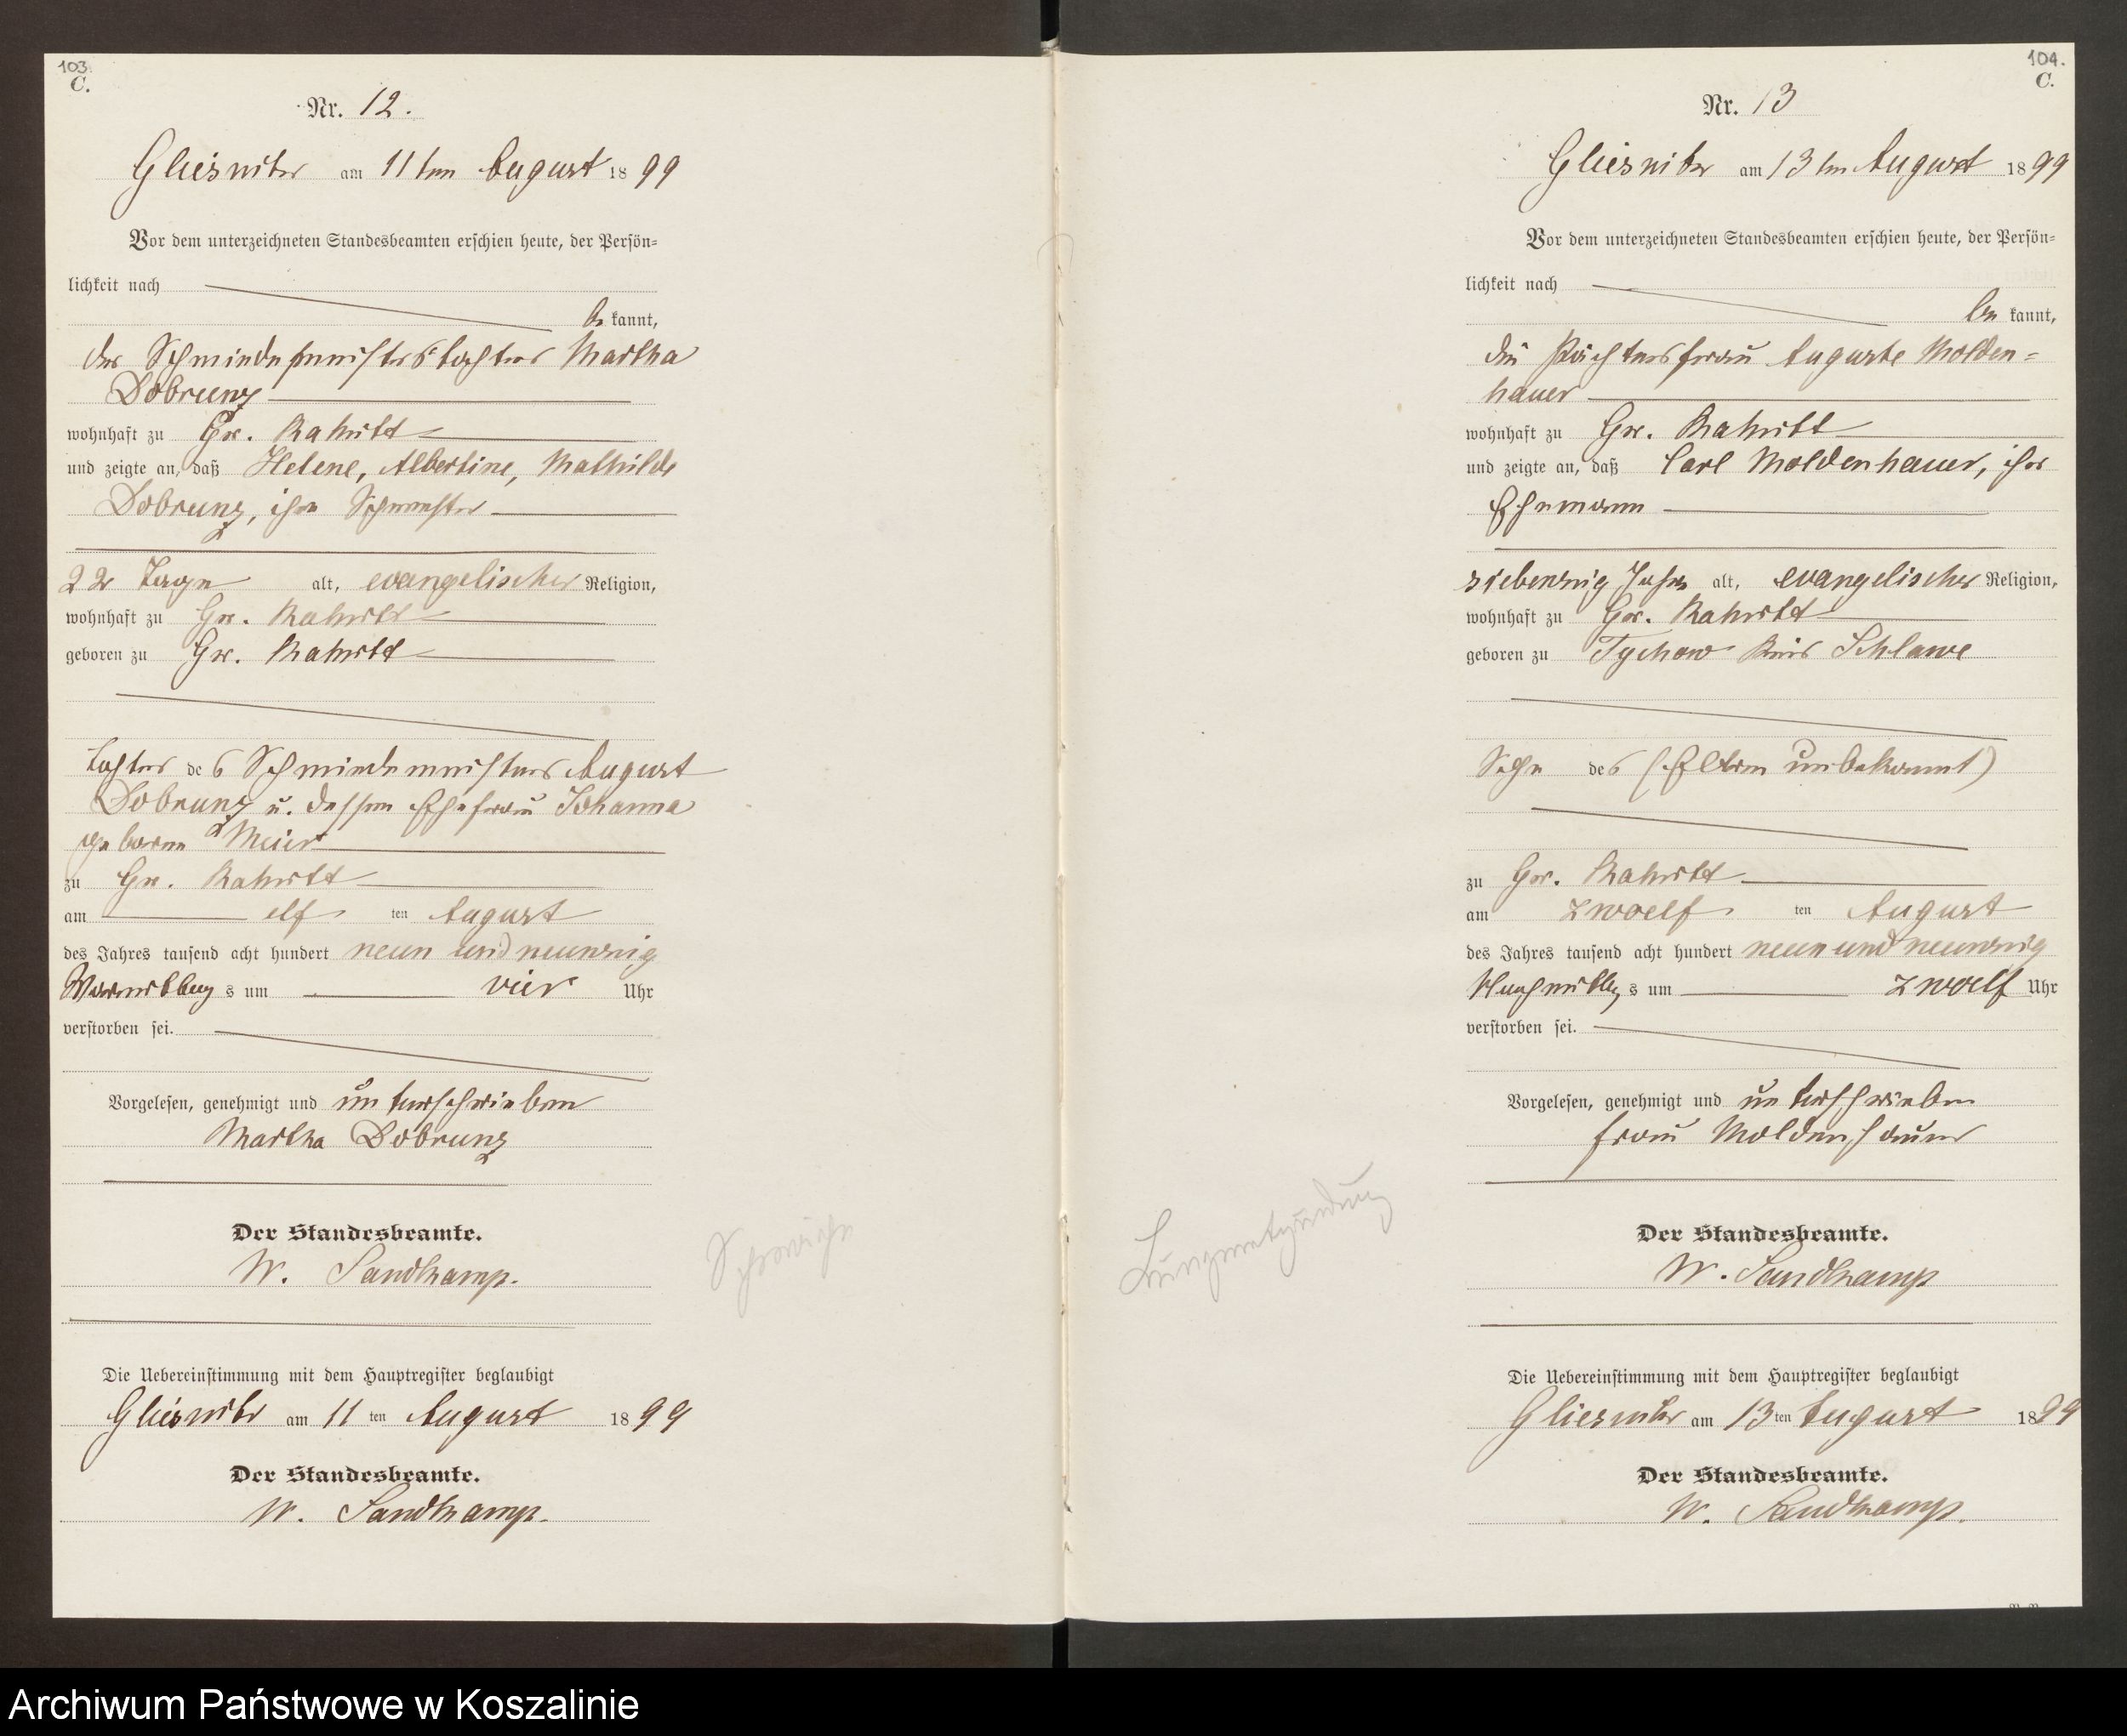 103.
C.
Nr. 12.
Gliesnitz am 11ten August 1899
Vor dem unterzeichneten Standesbeamten erschien heute, der Persön-
lichkeit nach
be kannt,
der Schmiedemeisterstochter Martha
Dobrunz
wohnhaft zu Gr. Rakitt
und zeigte an, daß Helene, Albertine, Mathilde
Dobrunz, ihre Schwester
22 Tage alt, evangelischer Religion,
wohnhaft zu Gr. Rakitt
geboren zu Gr. Rakitt
Tochter des Schmiedemeisters August
Dobrunz u. dessen Ehefrau Johanna
geborne Meier
zu Gr. Rakitt
am elf ten August
des Jahres tausend acht hundert neun und neunzig
Vormittags um vier Uhr
verstorben sei.
Vorgelesen, genehmigt und unterschrieben
Martha Dobrunz
Der Standesbeamte.
W. Sandkamp.
Schwäche
Die Uebereinstimmung mit dem Hauptregister beglaubigt
Gliesnitz am 11 ten August 1899
Der Standesbeamte.
W. Sandkamp.
104.
C.
Nr. 13
Gliesnitz am 13ten August 1899
Vor dem unterzeichneten Standesbeamten erschien heute, der Persön-
lichkeit nach
be kannt,
die Pächtersfrau Auguste Molden-
hauer
wohnhaft zu Gr. Rakitt
und zeigte an, daß Carl Moldenhauer, ihr
Ehemann
siebenzig Jahre alt, evangelischer Religion,
wohnhaft zu Gr. Rakitt
geboren zu Tychow Kreis Schlawe
Sohn des (Eltern unbekannt)
zu Gr. Rakitt
am zwoelf ten August
des Jahres tausend acht hundert neun und neunzig
Nachmittags um zwoelf Uhr
verstorben sei.
Vorgelesen, genehmigt und unterschrieben
Frau Moldenhauer
Lungenentzündung
Der Standesbeamte.
W. Sandkamp
Die Uebereinstimmung mit dem Hauptregister beglaubigt
Gliesnitz am 13 ten August 1899
Der Standesbeamte.
W. Sandkamp.
Archiwum Państwowe w Koszalinie